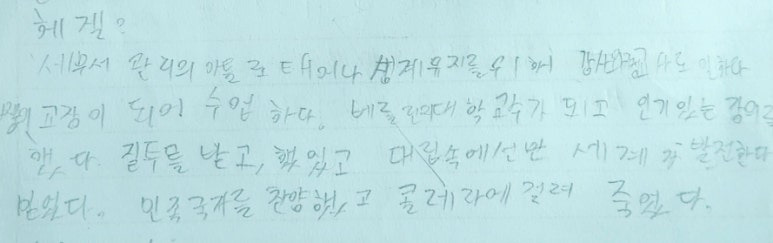 헤겔?
세무서 관리의 아들로 태어나 생계유지를 위해 강사하고 일하다
교장이 되어 수업하다. 베를린의 대학교수가 되고 인기있는 강의를
했다. 질투를 낳고, 했었고 대립속에선만 세계가 발전한다
믿었다. 민족국가를 찬양했고 콜레라에 걸려 죽었다.